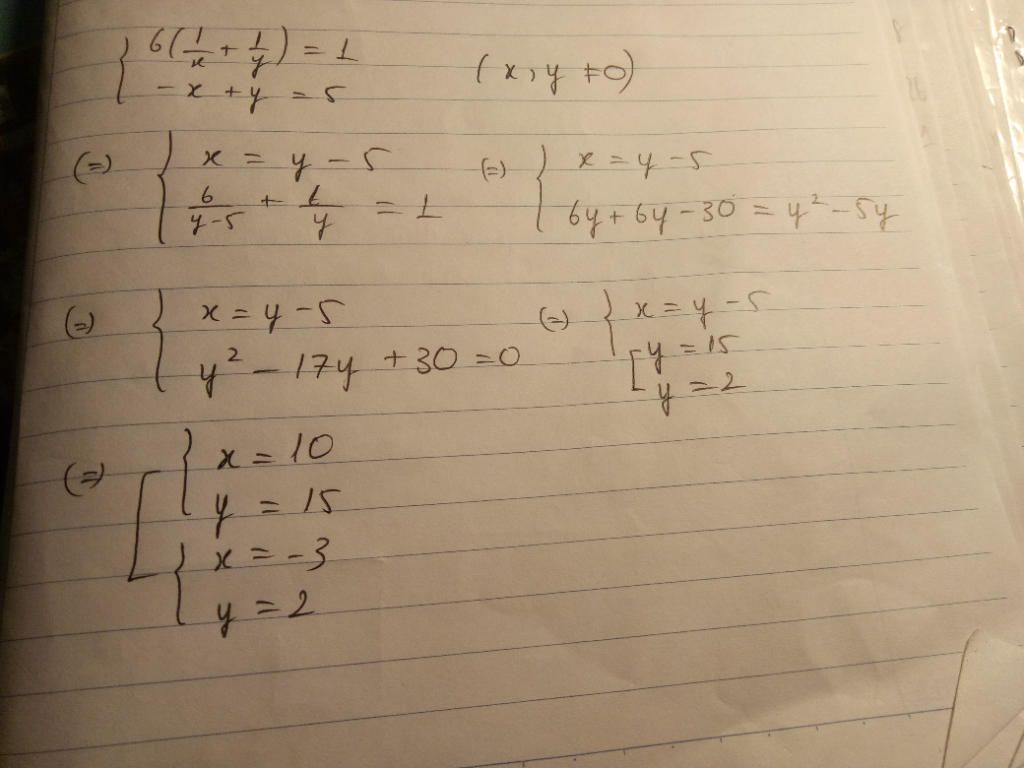 { 6(1/x + 1/y) = 1
{ -x + y = 5 (x, y ≠ 0)
(=) { x = y - 5 (=) { x = y - 5
{ 6/(y-5) + 1/y = 1 { 6y + 6y - 30 = y² - 5y
(=) { x = y - 5 (=) { x = y - 5
{ y² - 17y + 30 = 0 [ y = 15
[ y = 2
(=) [ { x = 10
{ y = 15
{ x = -3
{ y = 2